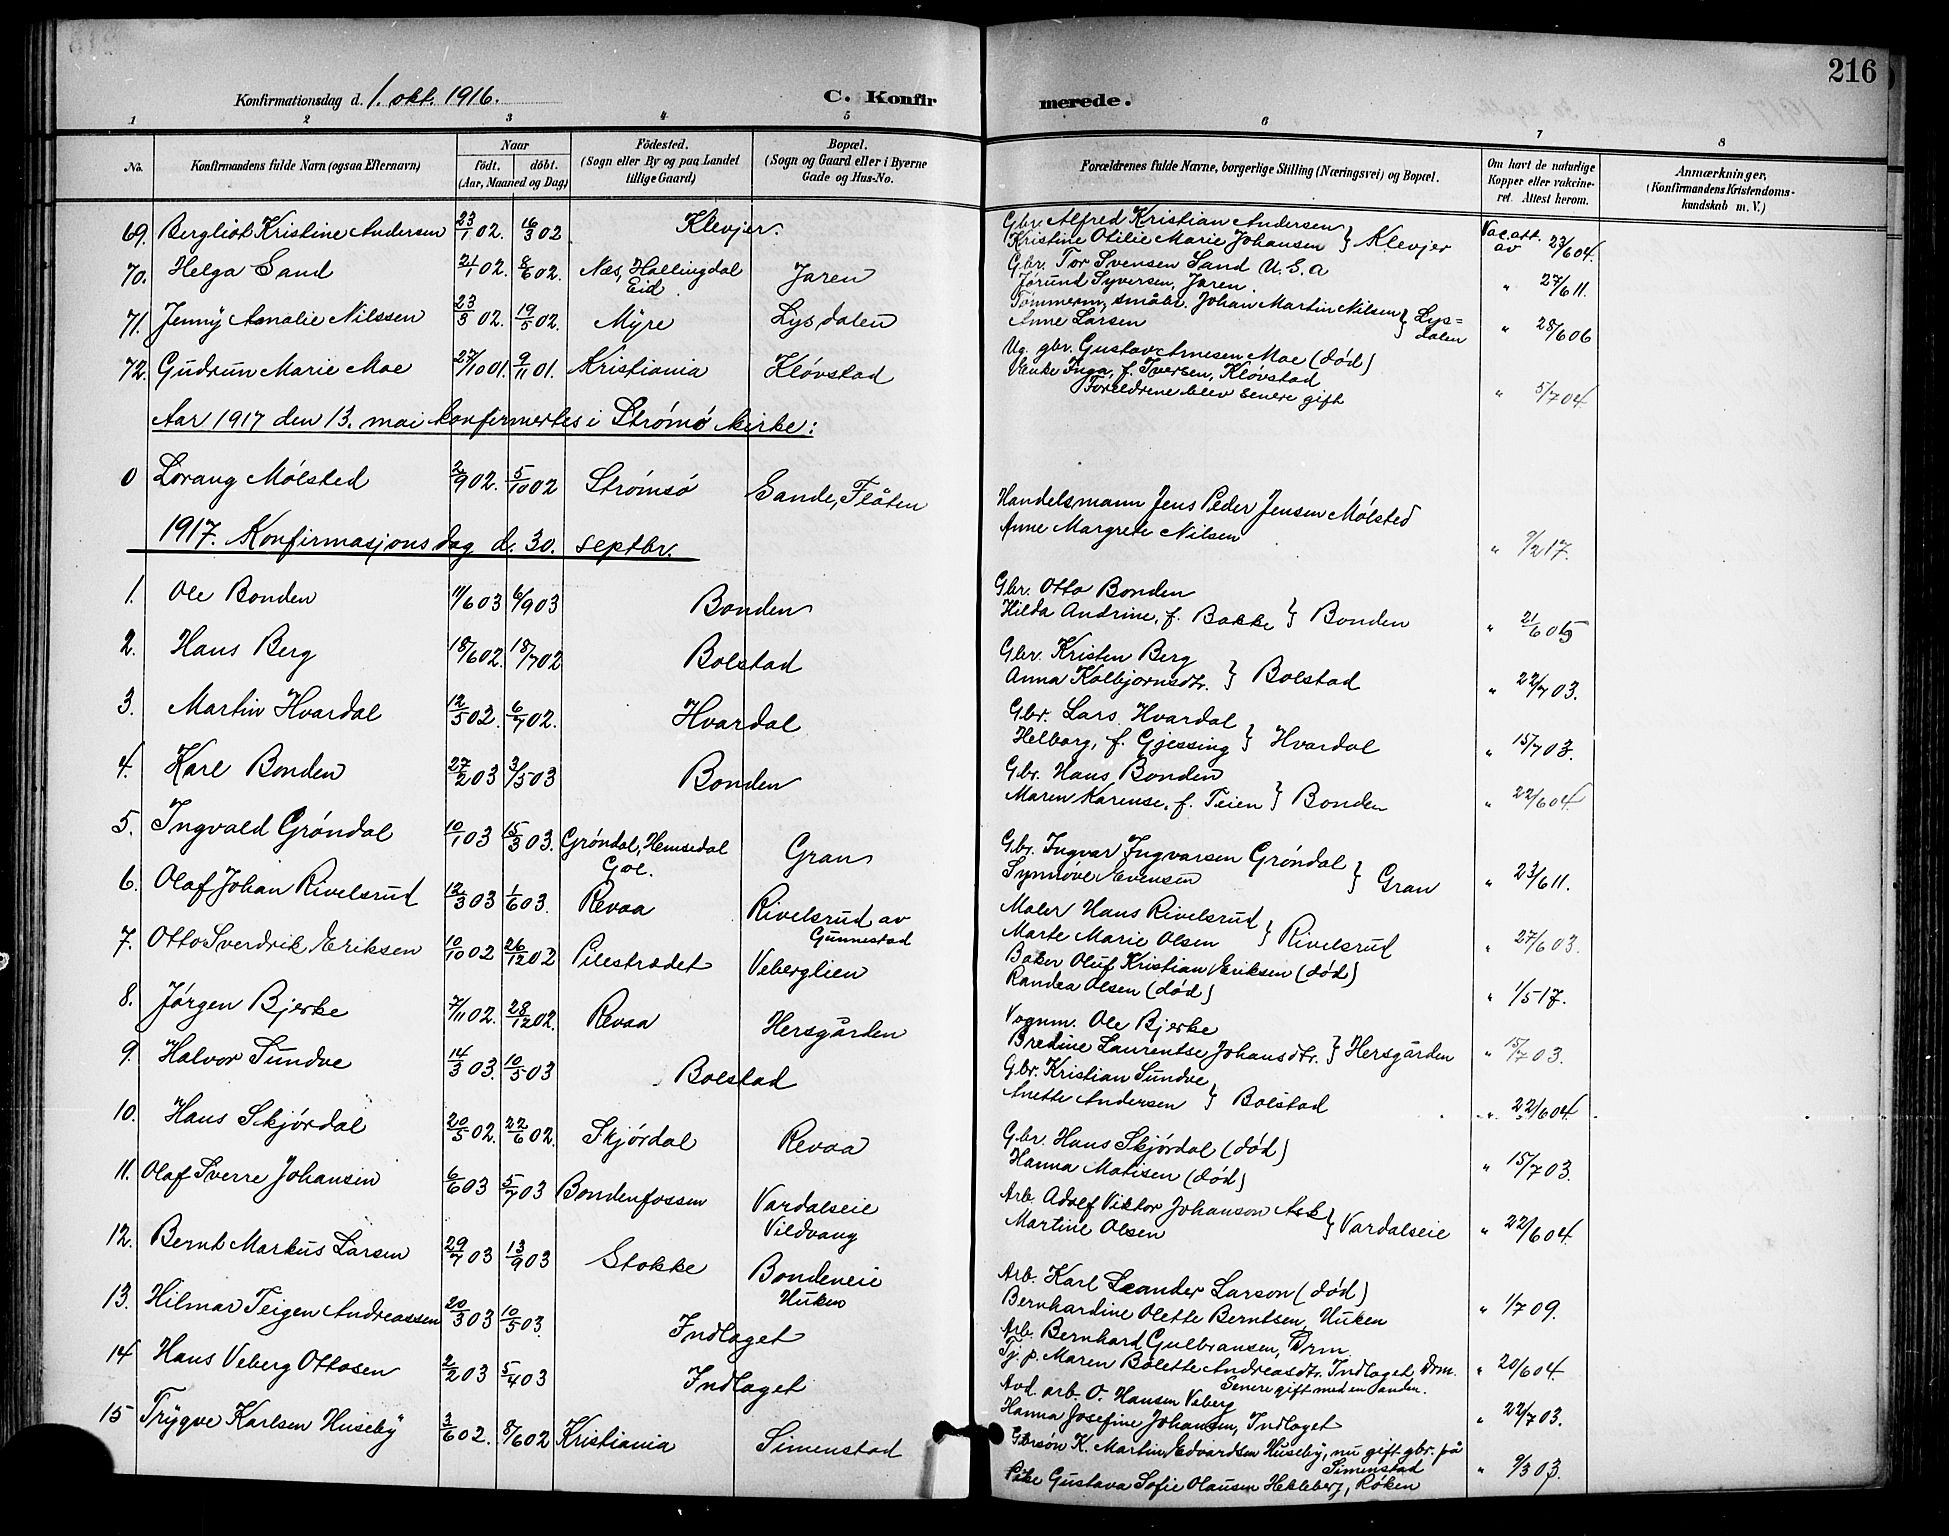 216
Konfirmationsdag d. 1. okt. 1916.
C. Konfirmerede.
1 2 3 4 5 6 7 8
No. Konfirmandens fulde Navn (ogsaa Efternavn) Naar født. døbt. (Aar, Maaned og Dag) Födested. (Sogn eller By og paa Landet tillige Gaard) Bopæl. (Sogn og Gaard eller i Byerne Gade og Hus-No. Forældrenes fulde Navne, borgerlige Stilling (Næringsvei) og Bopæl. Om havt de naturlige Kopper eller vakcineret. Attest herom. Anmærkninger, (Konfirmandens Kristendomskundskab m. V.)
69. Bergliot Kristine Andersen 23/1 02. 16/3 02 Klevjer. Gbr. Alfred Kristian Andersen
Kristine Otilie Marie Johansen } Klevjer Vac. att. av 23/6 04.
70. Helga Sand 21/1 02. 8/6 02. Næs, Hallingdal Eid. Jaren Gbr. Tor Svensen Sand U.S.a
Jørund Syversen, Jaren. " 27/6 11.
71. Jenny Amalie Nilssen 23/3 02. 19/5 02. Myre Lysdalen Tømmerm, småbr. Johan Martin Nilsen
Anne Larsen } Lysdalen " 28/6 06
72. Gudrun Marie Moe 27/10 01. 9/11 01. Kristiania Kløvstad Ug. gbr. Gustav Arnesen Moe (død)
Enke Inga, f. Iversen, Kløvstad
Forældrene blev senere gift " 5/7 04
Aar 1917 den 13. mai konfirmertes i Strømsø kirke:
0 Lorang Mølsted 2/9 02. 5/10 02 Strømsø Sande, Flåten Handelsmann Jens Peder Jensen Mølsted
Anne Margrete Nilsen " 9/2 17.
1917. Konfirmasjonsdag d. 30. septbr.
1. Ole Bonden 11/6 03 6/9 03 Bonden Gbr. Otto Bonden
Hilda Andrine, f. Bakke } Bonden " 21/6 05
2. Hans Berg 18/6 02. 18/7 02 Bolstad Gbr. Kristen Berg
Anna Kolbjørnsdtr. } Bolstad " 22/7 03.
3. Martin Hvardal 12/5 02. 6/7 02. Hvardal Gbr. Lars Hvardal
Helborg, f. Gjessing } Hvardal " 15/7 03.
4. Karl Bonden 27/2 03 3/5 03 Bonden Gbr. Hans Bonden
Maren Karense, f. Teien } Bonden " 22/6 04
5. Ingvald Grøndal 10/1 03 15/3 03. Grøndal, Hemsedal Gol. Gran Gbr. Ingvar Ingvarsen Grøndal
Synnøve Evensen } Gran " 23/6 11.
6. Olaf Johan Rivelsrud 12/3 03 1/6 03. Revaa Rivelsrud av Gunnestad Maler Hans Rivelsrud
Marte Marie Olsen } Rivelsrud " 27/6 03.
7. Otto Sverdrik Eriksen 10/10 02 26/12 02 Pilestrædet Veberglien Baker Oluf Kristian Eriksen (død)
Randea Olsen (død) " 1/5 17.
8. Jørgen Bjerke 7/11 02. 28/12 02. Revaa Hersgården Vognm. Ole Bjerke
Bredine Laurentse Johansdtr. } Hersgården " 15/7 03.
9. Halvor Sundve 14/3 03. 10/5 03 Bolstad Gbr. Kristian Sundve
Anette Andersen } Bolstad " 22/6 04.
10. Hans Skjørdal 20/5 02. 22/6 02. Skjørdal Revaa Gbr. Hans Skjørdal (død)
Hanna Matisen (død) " 15/7 03.
11. Olaf Sverre Johansen 6/6 03 5/7 03 Bondenfossen Vardalseie Vildvang Arb. Adolf Viktor Johanson Ask
Martine Olsen } Vardalseie " 22/6 04.
12. Bernt Markus Larsen 29/7 03 13/9 03 Stokke Bondeneie Huken Arb. Karl Leander Larson (død)
Bernhardine Olette Berntsen, Huken " 1/7 09.
13. Hilmar Teigen Andreassen 20/3 03 10/5 03 Indlaget Arb. Bernhard Gulbransen, Drm.
Tj. p. Maren Bolette Andreasdtr. Indlaget, Drm.
Senere gift med en anden. " 20/6 04.
14 Hans Veberg Ottosen 2/2 03 5/4 03 Indlaget Avd. arb. O. Hansen Veberg
Hanna Josefine Johansen, Indlaget " 22/7 03.
15 Trygve Karlsen Huseby 3/6 02. 8/6 02 Kristiania Simenstad Gbrsøn K. Martin Edvardsen Huseby, nu gift gbr. på Simenstad
Pike Gustava Sofie Olausen Hekleberg, Røken " 9/3 03.